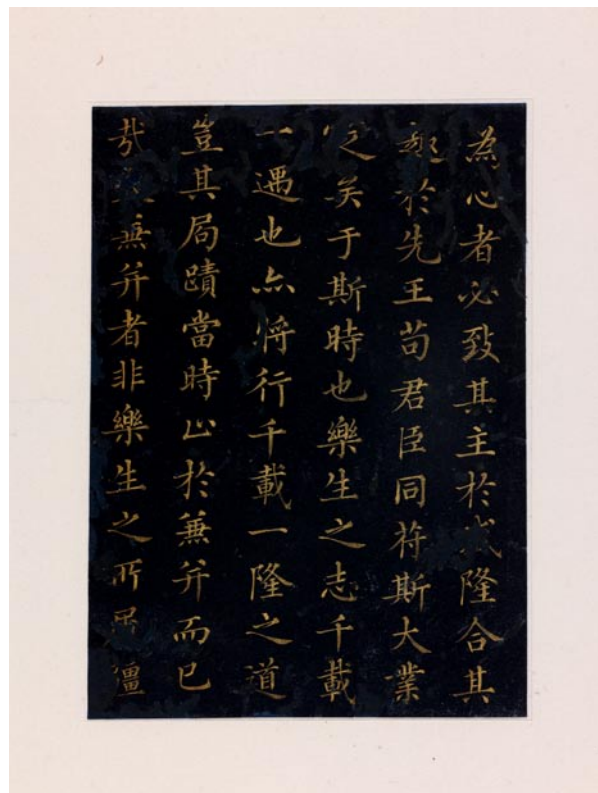 為心者必致其主於盛隆合其
趣於先王苟君臣同符斯大業
定矣于斯時也樂生之志千載
一遇也亦將行千載一隆之道
豈其局蹟當時止於兼并而已
哉夫兼并者非樂生之所屑彊